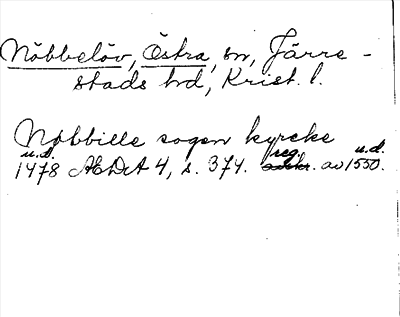 Nöbbelöv, Östra, sn, Järre-
stads hd, Krist. l.
Nobbille sogen kyrcke
u.d. reg. u.d.
1478 ÆDA 4, s. 374. av 1550.